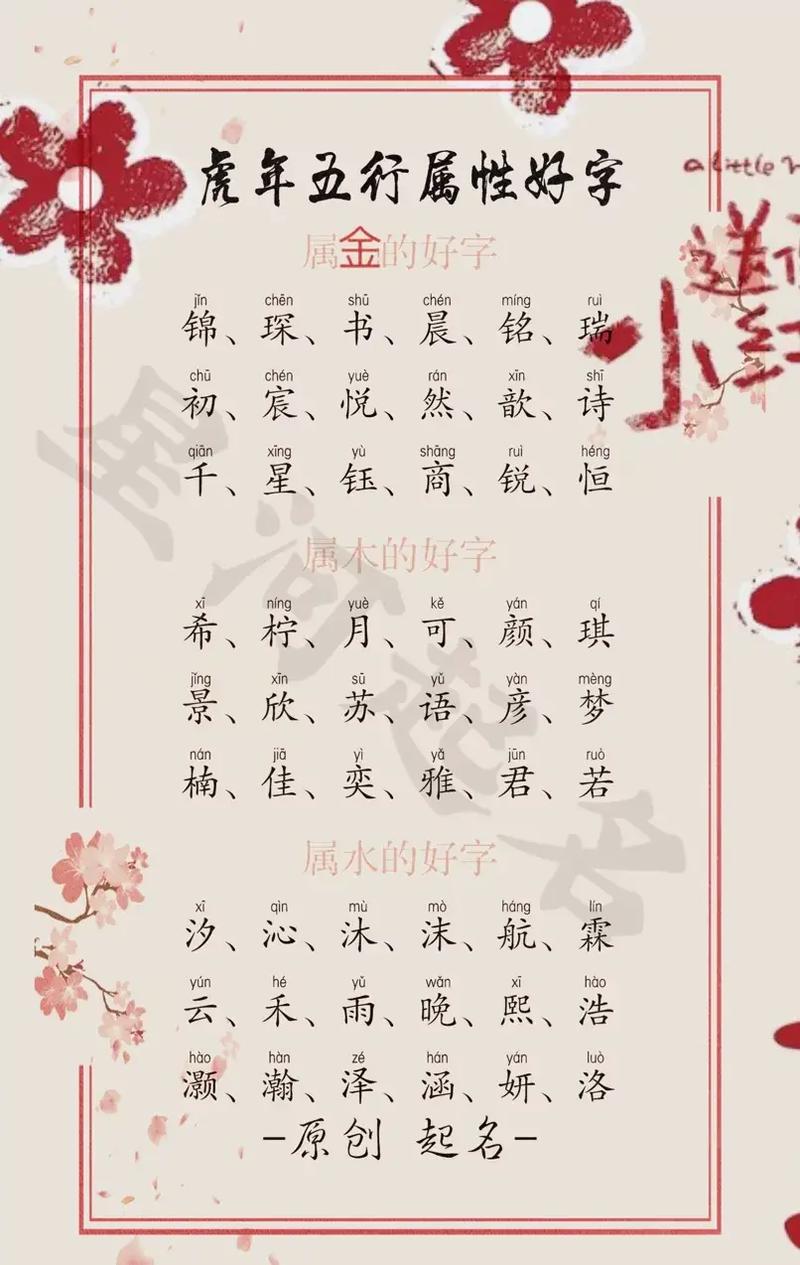 虎年五行属性好字
a little
送
小红
属金的好字
jǐn chēn shū chén míng ruì
锦、琛、书、晨、铭、瑞
chū chén yuè rán xīn shī
初、宸、悦、然、歆、诗
qiān xīng yù shāng ruì héng
千、星、钰、商、锐、恒
属木的好字
xī níng yuè kě yán qí
希、柠、月、可、颜、琪
jǐng xīn sū yǔ yàn mèng
景、欣、苏、语、彦、梦
nán jiā yì yǎ jūn ruò
楠、佳、奕、雅、君、若
属水的好字
xī qìn mù mò háng lín
汐、沁、沐、沫、航、霖
yún hé yǔ wǎn xī hào
云、禾、雨、晚、熙、浩
hào hàn zé hán yán luò
灏、瀚、泽、涵、妍、洛
-原创 起名-
星河起名